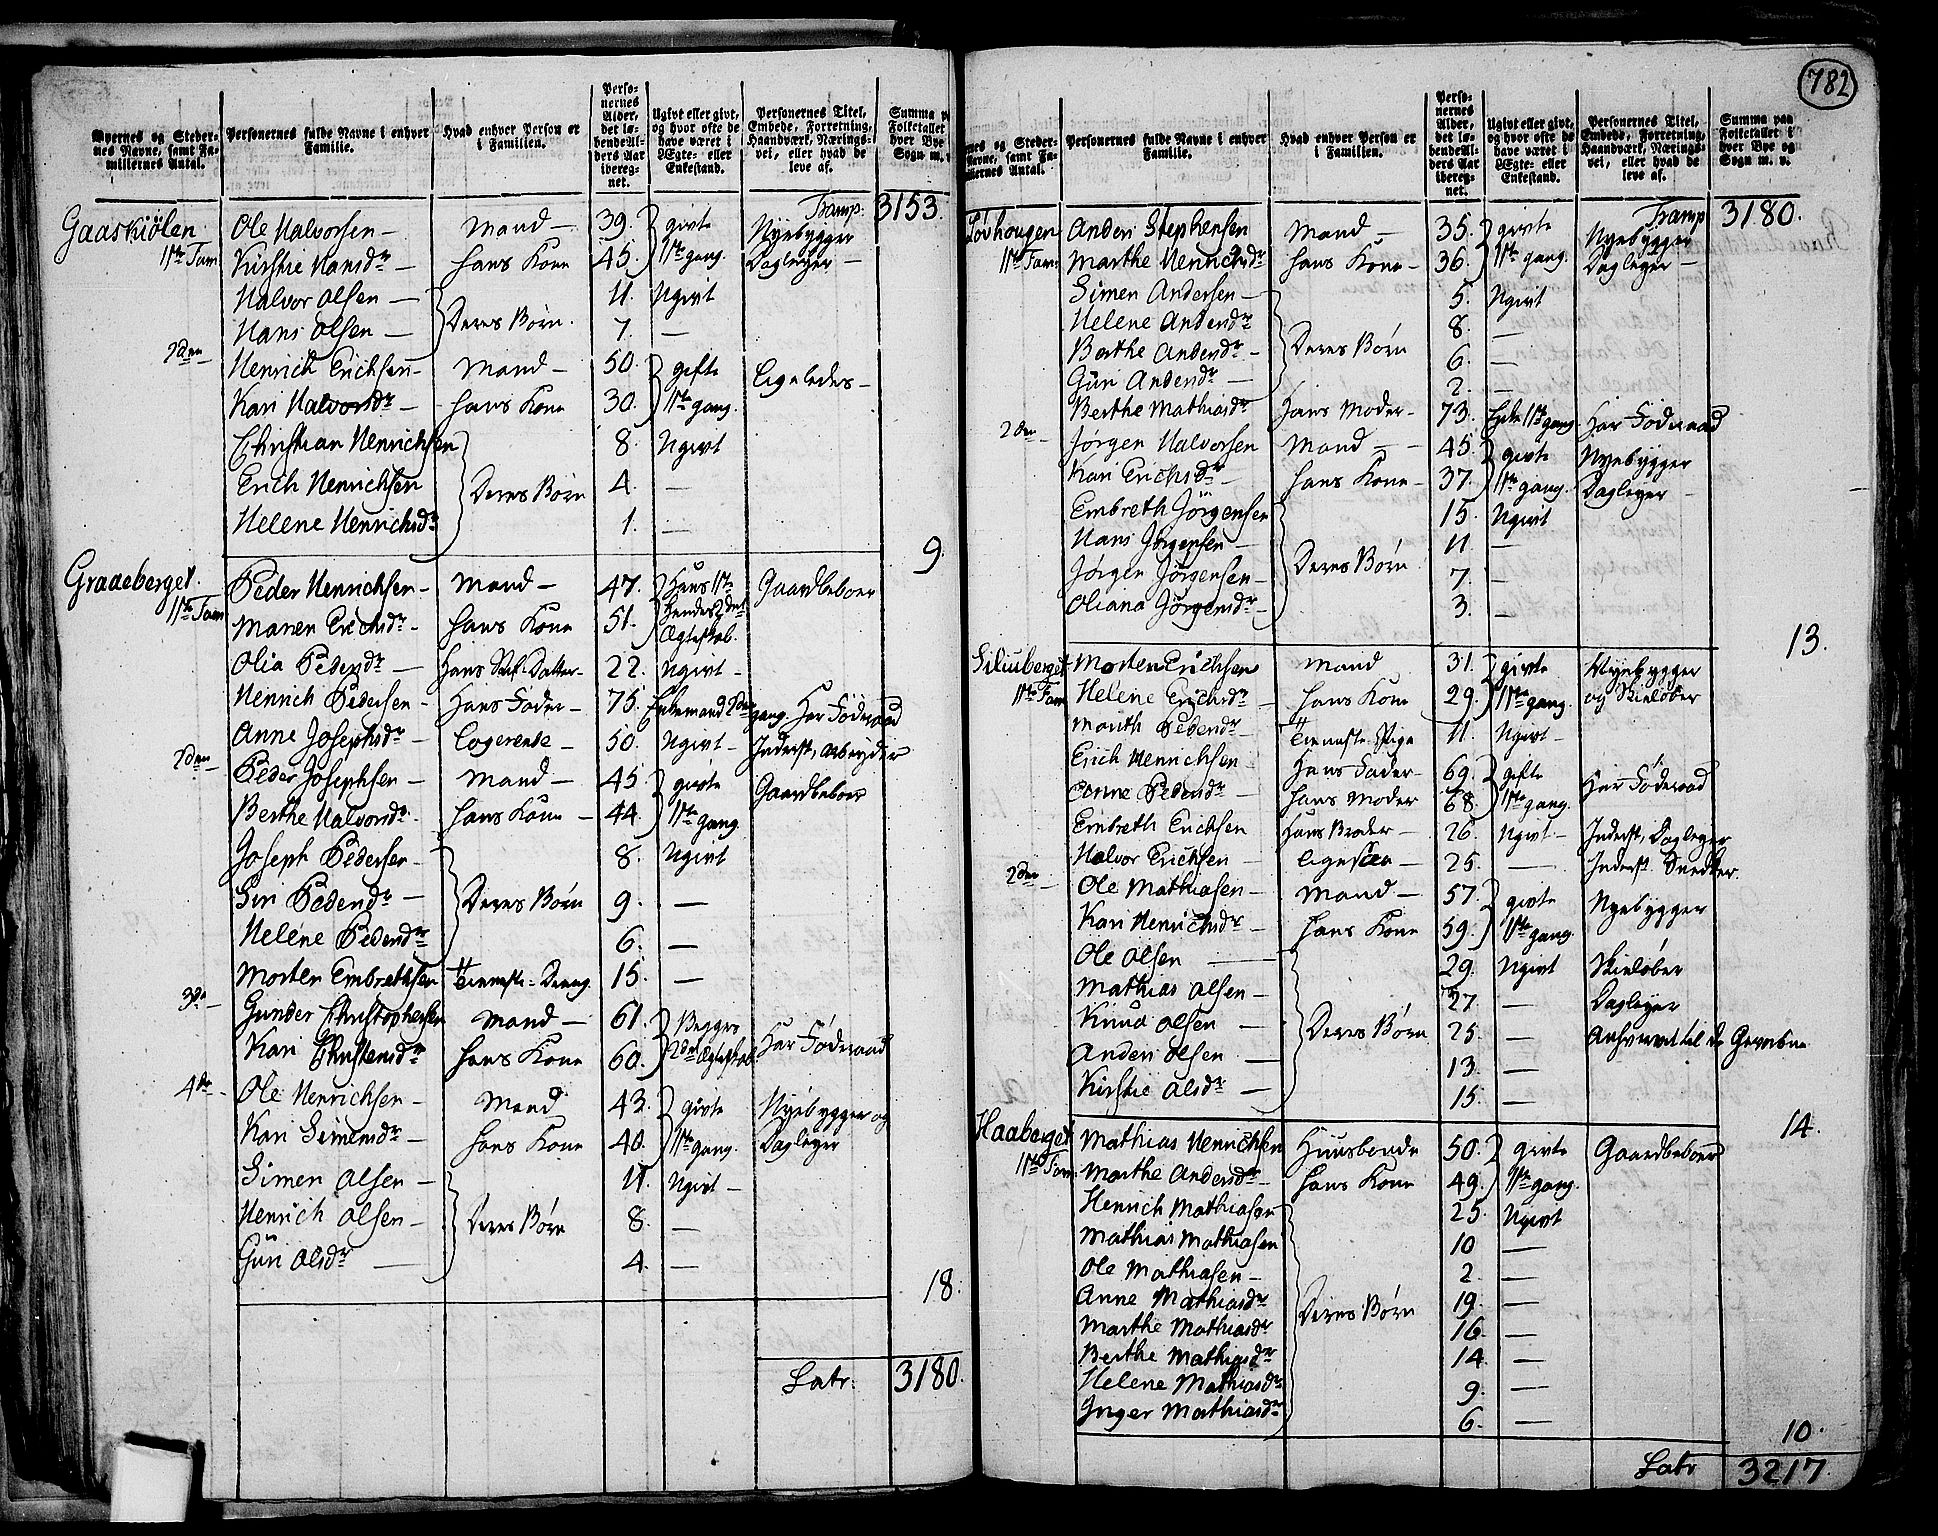 782
Byernes og Steder-nes Navne, samt Fa-miliernes Antal. | Personernes fulde Navne i enhver Familie. | Hvad enhver Person er i Familien. | Perso-nernes Alder, det lø-bende Al-ders Aar ibereg-net. | Ugivt eller givt, og hvor ofte de have været i Ægte- eller Enkestand. | Personernes Titel, Embede, Forretning, Haandværk, Nærings-vei, eller hvad de leve af. | Summa paa Folketallet i hver Bye og Sogn m. v.
Transp. 3153.
Gaaskiölen Ole Halvorsen — Mand — 39. givte Nyebygger
1ste Fam Kirstie Hansdr — Hans Kone 45. 1ste gang. Dagleyer —
Halvor Olsen — Deres Børn. 11. Ugivt
Hans Olsen — 7. —
2den Henrich Erichsen — Mand — 50. gifte Ligeledes —
Kari Halvorsdr — Hans Kone 30. 1ste gang.
Christian Henrichsen 8. Ugivt
Erich Henrichsen Deres Børn 4. —
Helene Henrichsdr 1. —
9.
Graaeberget. Peder Henrichsen — Mand — 47. Hans 1ste Gaardbeboer
1ste Fam Maren Erichsdr — Hans Kone 51. Hendes 2det Ægteskab.
Olia Pedersdr — Hans Datter — 22. Ugivt —
Henrich Pedersen — Hans Fader — 75. Enkemand 2den gang. Har Föderaad
Anne Josephsdr — Logerende — 50. Ugivt — Inderst, arbeyder
2den — Peder Josephsen — Mand — 45 givte Gaardbeboer
Berthe Halvorsdr. Hans Kone — 44. 1ste gang.
Joseph Pedersen — 8. Ugivt
Siri Pedersdr — Deres Børn 9. —
Helene Pedersdr 6. —
Morten Embrethsen Tienneste-Dreng 15. —
3de — Gunder Christophersen Mand — 61. Begges Har Föderaad
Kari Christensdr Hans Kone 60. 2det Ægteskab.
4de — Ole Henrichsen — Mand 43. givte Nyebygger og
Kari Simensdr — Hans Kone 40. 1ste gang. Dagleyer
Simen Olsen — 11. Ugivt —
Henrich Olsen — Deres Børn 8. —
Guri Olsdr — 4. —
18.
Latr. 3180.
Byernes og Steder-nes Navne, samt Fa-miliernes Antal. | Personernes fulde Navne i enhver Familie. | Hvad enhver Person er i Familien. | Perso-nernes Alder, det lø-bende Al-ders Aar ibereg-net. | Ugivt eller givt, og hvor ofte de have været i Ægte- eller Enkestand. | Personernes Titel, Embede, Forretning, Haandværk, Nærings-vei, eller hvad de leve af. | Summa paa Folketallet i hver Bye og Sogn m. v.
Transp 3180.
Lövhougen Anders Stephensen Mand — 35. givte Nyebygger
1ste Fam Marthe Henrichsdr Hans Kone — 36. 1ste gang. Dagleyer —
Simen Andersen — 5. Ugivt
Helene Andersdr 8. —
Berthe Andersdr — Deres Børn 6. —
Guri Andersdr — 2. —
Berthe Mathiasdr Hans Moder — 73. Enke 1ste gang Har Föderaad
2den Jørgen Halvorsen Mand — 45. givte Nyebygger
Kari Erichsdr — Hans Kone — 37. 1ste gang. Dagleyer —
Embreth Jørgensen 15. Ugivt
Hans Jørgensen — 11. —
Jørgen Jørgensen — Deres Børn 7. —
Oliana Jørgensdr — 3. —
13.
Siliuberget Morten Erichsen Mand 31. givte Nyebygger
1ste Fam Helene Erichsdr — Hans Kone 29. 1ste gang. og Skieløber
Marith Pedersdr — Tienneste-Pige 11. Ugivt —
Erich Henrichsen — Hans Fader — 69. gifte Har Föderaad
Pedersdr — Hans Moder 68. 1ste gang.
Embreth Erichsen Hans Broder — 26. Ugivt — Inderst, Dagleyer
Halvor Erichsen — 25. — Inderst. Snedker.
2den — Ole Mathiasen — Mand — 57. givte Nyebygger
Kari Henrichsdr — Hans Kone 59. 1ste gang.
Ole Olsen — 29. Ugivt Skieløber
Mathias Olsen — 27 — Dagleyer
Knud Olsen — Deres Børn 25. —
Anders Olsen — 13. —
Kirstie Olsdr — 15. —
14.
Haaberget Mathias Henrichsen Huusbonde 50. givte Gaardbeboer
1ste Fam. Marthe Andersdr — Hans Kone 49. 1ste gang.
Henrich Mathiasen 25. Ugivt
Mathias Mathiasen 10 —
Ole Mathiasen — 2. —
Anne Mathiasdr Deres Børn 19. —
Marthe Mathiasdr 16. —
Berthe Mathiasdr 14 —
Helene Mathiasdr 9. —
Inger Mathiasdr 6. —
10.
Latr 3217.